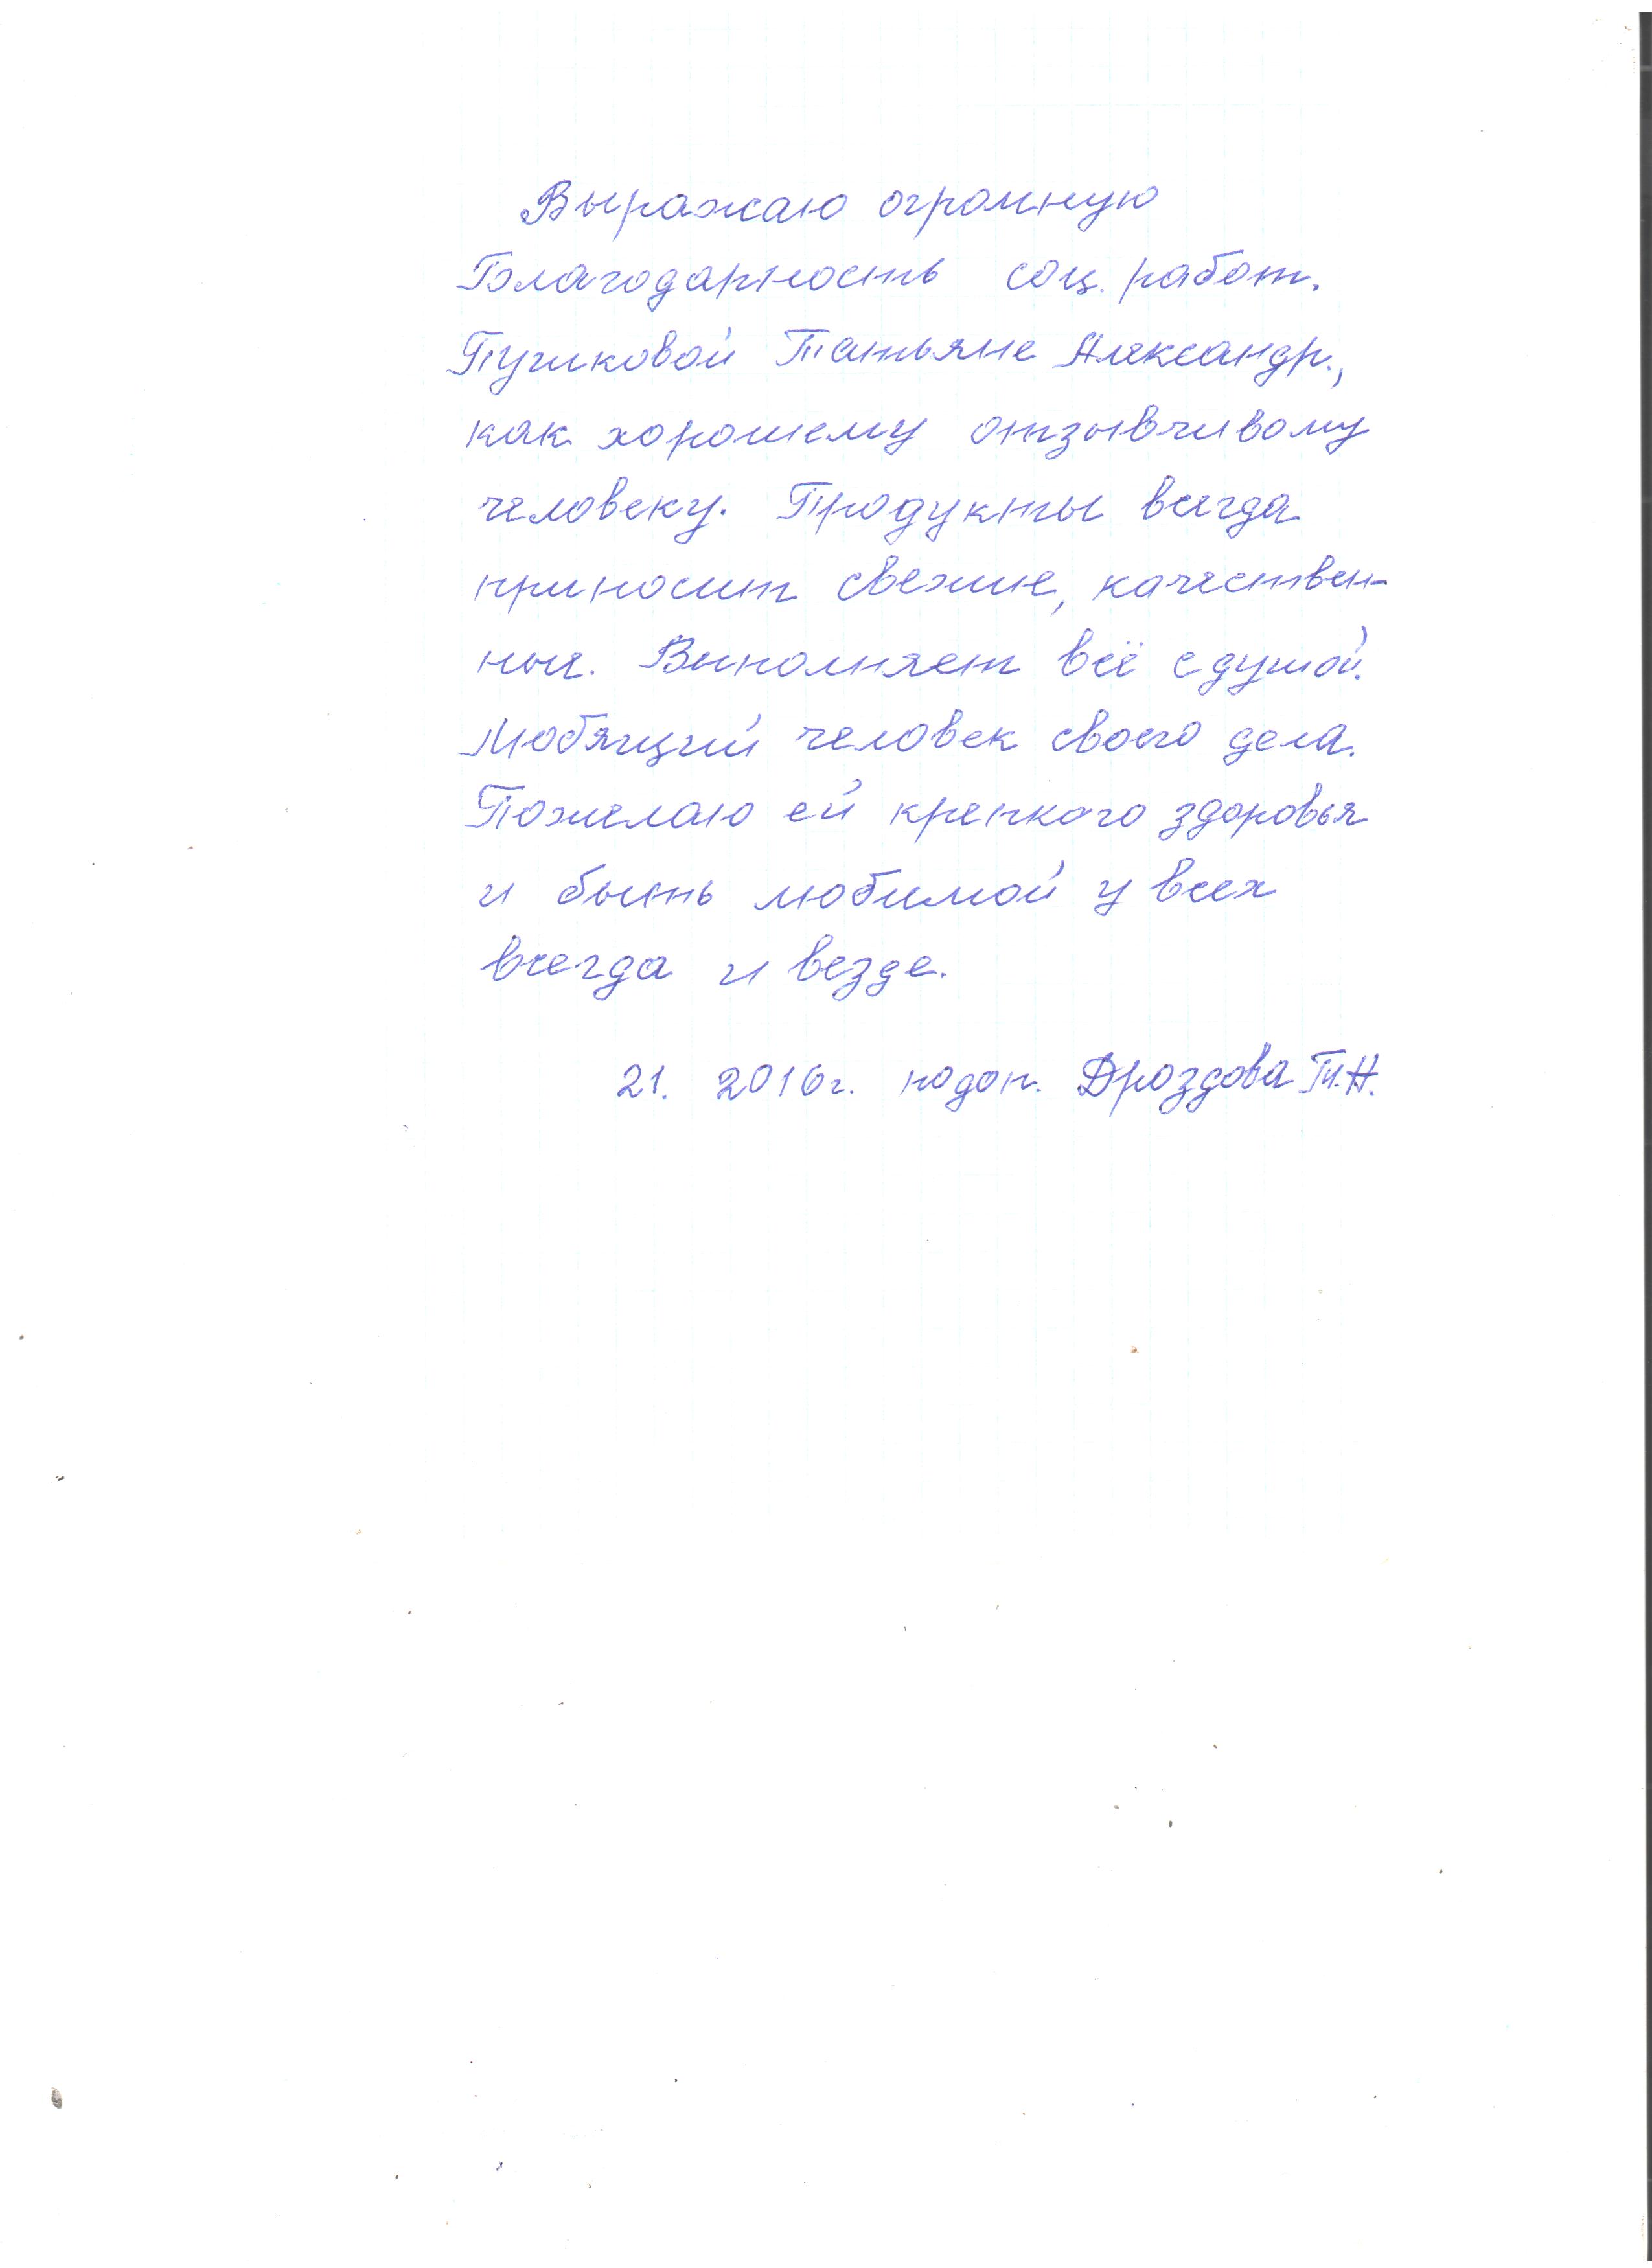 Выражаю огромную
Благодарность соц. работ.
Пучковой Татьяне Александр.,
как хорошему отзывчивому
человеку. Продукты всегда
приносит свежие, качествен-
ные. Выполняет всё с душой.
Любящий человек своего дела.
Пожелаю ей крепкого здоровья
и быть любимой у всех
всегда и везде.
21. 2016г. Дроздова Т.Н.